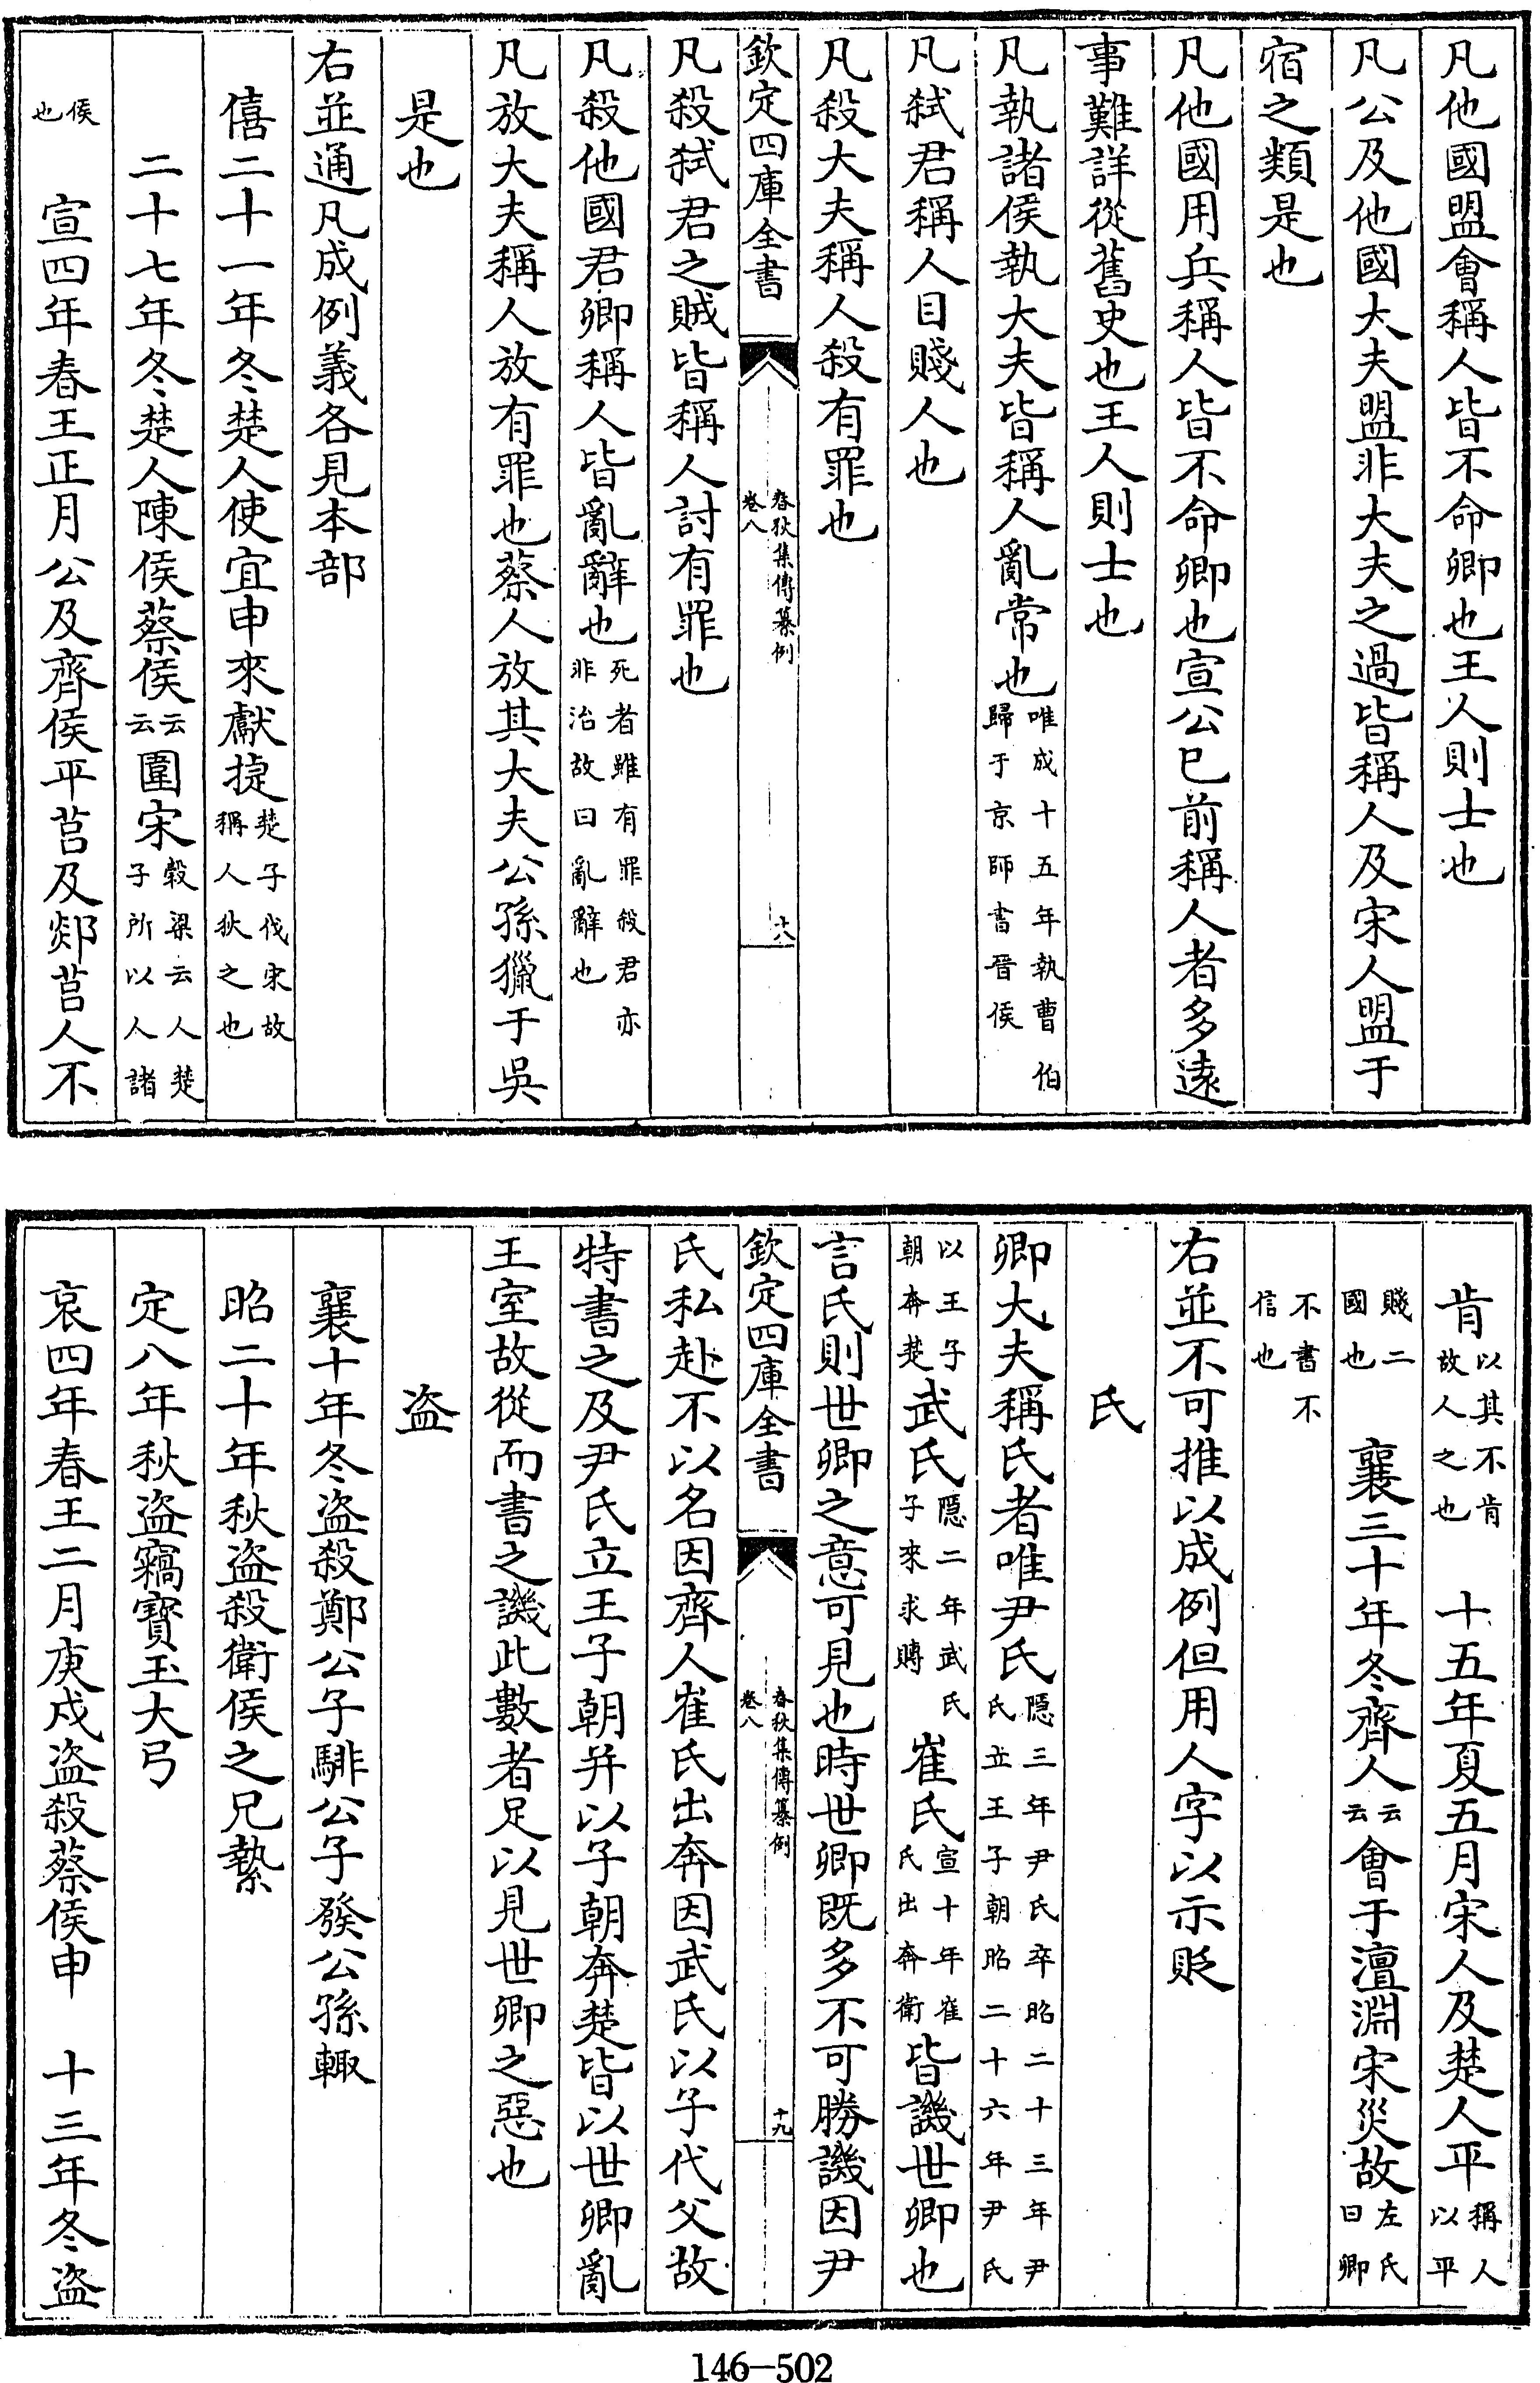 凡他國盟會稱人皆不命卿也王人則士也
凡公及他國大夫盟非大夫之過皆稱人及宋人盟于
宿之類是也
凡他國用兵稱人皆不命卿也宣公已前稱人者多遠
事難詳從舊史也王人則士也
凡執諸侯執大夫皆稱人亂常也唯成十五年執曹伯歸于京師書晉侯
凡弑君稱人目賤人也
凡殺大夫稱人殺有罪也
欽定四庫全書
春秋集傳纂例
卷八
十八
凡殺弑君之賊皆稱人討有罪也
凡殺他國君卿稱人皆亂辭也死者雖有罪殺君亦非治故曰亂辭也
凡放大夫稱人放有罪也蔡人放其大夫公孫獵于吳
是也
右並通凡成例義各見本部
僖二十一年冬楚人使宜申來獻捷楚子伐宋故稱人狄之也
二十七年冬楚人陳侯蔡侯云云圍宋穀梁云人楚子所以人諸
侯也 宣四年春王正月公及齊侯平莒及郯莒人不
肯以其不肯故人之也 十五年夏五月宋人及楚人平稱人以平
賤二國也 襄三十年冬齊人云云會于澶淵宋災故左氏曰卿
不書不信也
右並不可推以成例但用人字以示貶
氏
卿大夫稱氏者唯尹氏隱三年尹氏卒昭二十三年尹氏立王子朝昭二十六年尹氏
以王子朝奔楚武氏隱二年武氏子來求賻 崔氏宣十年崔氏出奔衛皆譏世卿也
言氏則世卿之意可見也時世卿既多不可勝譏因尹
欽定四庫全書
春秋集傳纂例
卷八
十九
氏私赴不以名因齊人崔氏出奔因武氏以子代父故
特書之及尹氏立王子朝并以子朝奔楚皆以世卿亂
王室故從而書之譏此數者足以見世卿之惡也
盜
襄十年冬盜殺鄭公子騑公子發公孫輒
昭二十年秋盜殺衛侯之兄縶
定八年秋盜竊寶玉大弓
哀四年春王二月庚戌盜殺蔡侯申 十三年冬盜
146-502